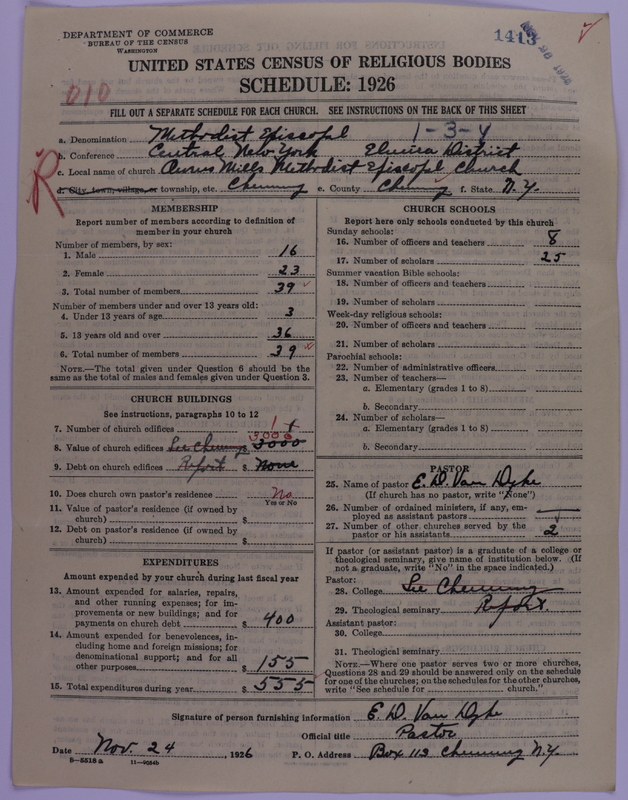 DEPARTMENT OF COMMERCE
BUREAU OF THE CENSUS
WASHINGTON
1413
NOV 26 1926
UNITED STATES CENSUS OF RELIGIOUS BODIES
SCHEDULE: 1926
010
FILL OUT A SEPARATE SCHEDULE FOR EACH CHURCH. SEE INSTRUCTIONS ON THE BACK OF THIS SHEET
a. Denomination Methodist Episcopal 1-3-4
b. Conference Central New York Elmira District
c. Local name of church Mills Methodist Episcopal Church
R
d. City, town, village, or township, etc. Chemung e. County Chemung f. State N.Y.
MEMBERSHIP
Report number of members according to definition of
member in your church
Number of members, by sex:
1. Male 16
2. Female 23
3. Total number of members 39
Number of members under and over 13 years old:
4. Under 13 years of age 3
5. 13 years old and over 36
6. Total number of members 39
NOTE.—The total given under Question 6 should be
same as the total of males and females given under Question 3.
CHURCH BUILDINGS
See instructions, paragraphs 10 to 12
7. Number of church edifices 1
3000
8. Value of church edifices See Chemung $ 3000
9. Debt on church edifices Report $ None
10. Does church own pastor's residence No
Yes or No
11. Value of pastor's residence (if owned by
church) $
12. Debt on pastor's residence (if owned by
church) $
EXPENDITURES
Amount expended by your church during last fiscal year
13. Amount expended for salaries, repairs,
and other running expenses; for im-
provements or new buildings; and for
payments on church debt $ 400
14. Amount expended for benevolences, in-
cluding home and foreign missions; for
denominational support; and for all
other purposes $ 155
15. Total expenditures during year $ 555
CHURCH SCHOOLS
Report here only schools conducted by this church
Sunday schools:
16. Number of officers and teachers 8
17. Number of scholars 25
Summer vacation Bible schools:
18. Number of officers and teachers
19. Number of scholars
Week-day religious schools:
20. Number of officers and teachers
21. Number of scholars
Parochial schools:
22. Number of administrative officers
23. Number of teachers—
a. Elementary (grades 1 to 8)
b. Secondary
24. Number of scholars—
a. Elementary (grades 1 to 8)
b. Secondary
PASTOR
25. Name of pastor E. D. Van Dyke
(If church has no pastor, write "None")
26. Number of ordained ministers, if any, em-
ployed as assistant pastors —
27. Number of other churches served by the
pastor or his assistants 2
If pastor (or assistant pastor) is a graduate of a college or
theological seminary, give name of institution below. (If
not a graduate, write "No" in the space indicated.)
Pastor:
28. College See Chemung
29. Theological seminary Report
Assistant pastor:
30. College
31. Theological seminary
NOTE.—Where one pastor serves two or more churches,
Questions 28 and 29 should be answered only on the schedule
for one of the churches; on the schedules for the other churches,
write "See schedule for church."
Signature of person furnishing information E. D. Van Dyke
Official title Pastor
Date Nov. 24, 1926 P. O. Address Box 113 Chemung N.Y.
8-5518 a